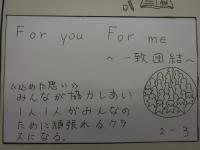 For you For me
～一致団結～
《込めた思い》
みんなが協力しあい
1人1人がみんなの
ために頑張れるクラ
スになる。
2-3